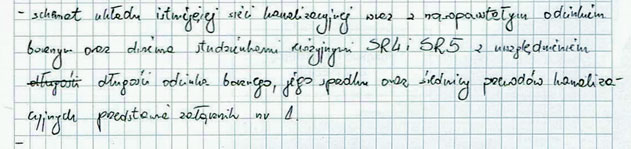 - schemat układu istniejącej sieci kanalizacyjnej wraz z nowopowstałym odcinkiem
bocznym oraz dwiema studzienkami rewizyjnymi SR4 i SR5 z uwzględnieniem
długości długości odcinka bocznego, jego spadku oraz średnicy przewodów kanaliza-
cyjnych przedstawia załącznik nr 1.
-